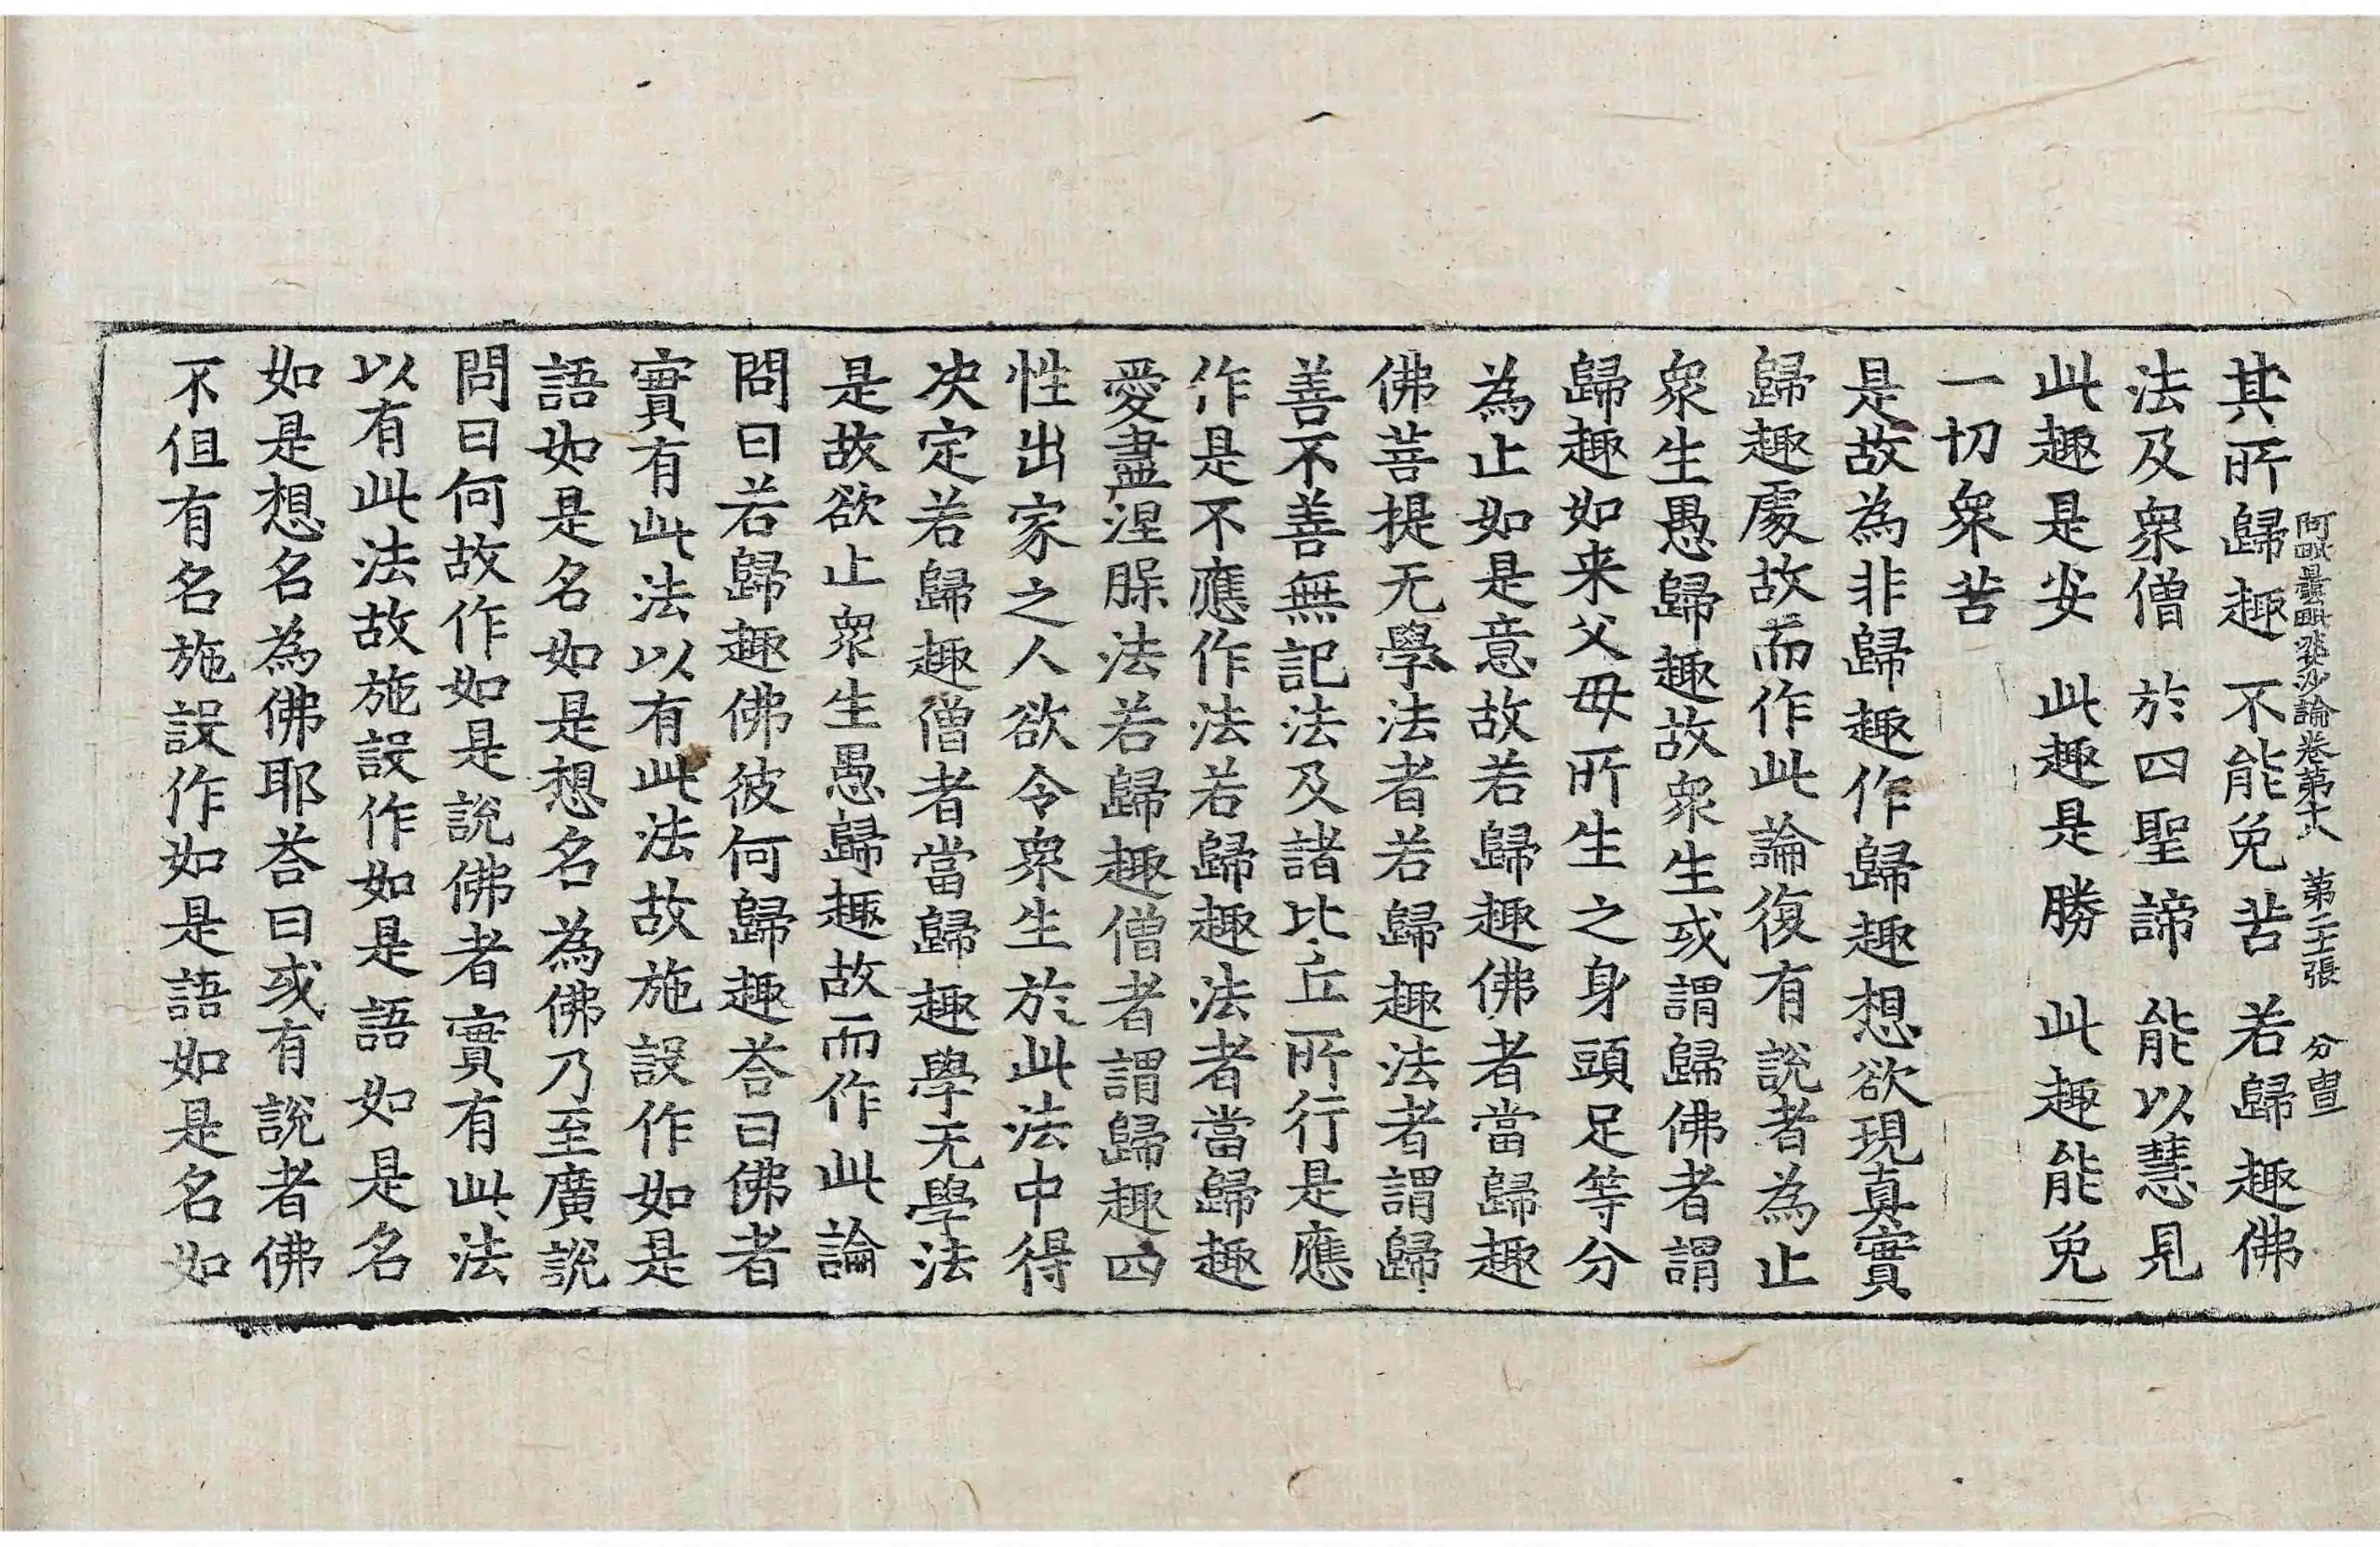 其所歸趣 不能免苦 若歸趣佛
阿毗曇毗婆沙論卷第十八 第二十二張 分 亶
法及衆僧 於四聖諦 能以慧見
此趣是安 此趣是勝 此趣能免
一切衆苦
是故為非歸趣作歸趣想欲現真實
歸趣處故而作此論復有說者為止
衆生愚歸趣故衆生或謂歸佛者謂
歸趣如来父母所生之身頭足等分
為止如是意故若歸趣佛者當歸趣
佛菩提无學法者若歸趣法者謂歸
善不善無記法及諸比丘所行是應
作是不應作法若歸趣法者當歸趣
愛盡涅槃法若歸趣僧者謂歸趣四
性出家之人欲令衆生於此法中得
决定若歸趣僧者當歸趣學无學法
是故欲止衆生愚歸趣故而作此論
問曰若歸趣佛彼何歸趣荅曰佛者
實有此法以有此法故施設作如是
語如是名如是想名為佛乃至廣說
問曰何故作如是說佛者實有此法
以有此法故施設作如是語如是名
如是想名為佛耶荅曰或有說者佛
不但有名施設作如是語如是名如